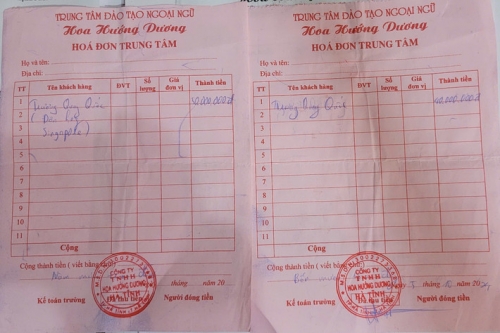 TRUNG TÂM ĐÀO TẠO NGOẠI NGỮ
Hoa Hướng Dương
HOÁ ĐƠN TRUNG TÂM
Họ và tên:
Địa chỉ:
TT Tên khách hàng ĐVT Số lượng Giá đơn vị Thành tiền
1 Quốc 000.000đ
2 ( Du
3 Singapore)
4
5
6
7
8
9
10
11
Cộng
Cộng thành tiền ( viết bằng
tháng năm 20
CÔNG TY
TNHH
HOA HƯỚNG DƯƠNG
HÀ TĨNH
Đã thu tiền
Kế toán trưởng Người đóng tiền
TRUNG TÂM ĐÀO TẠO NGOẠI NGỮ
Hoa Hướng Dương
HOÁ ĐƠN TRUNG TÂM
Họ và tên:
Địa chỉ:
TT Tên khách hàng ĐVT Số lượng Giá đơn vị Thành tiền
1 000.000đ
2
3
4
5
6
7
8
9
10
11
Cộng
Cộng thành tiền ( viết bằng
Bốn
Ngày tháng năm 20
CÔNG TY
TNHH
HOA HƯỚNG DƯƠNG
HÀ TĨNH
Đã thu tiền
Kế toán trưởng Người đóng tiền